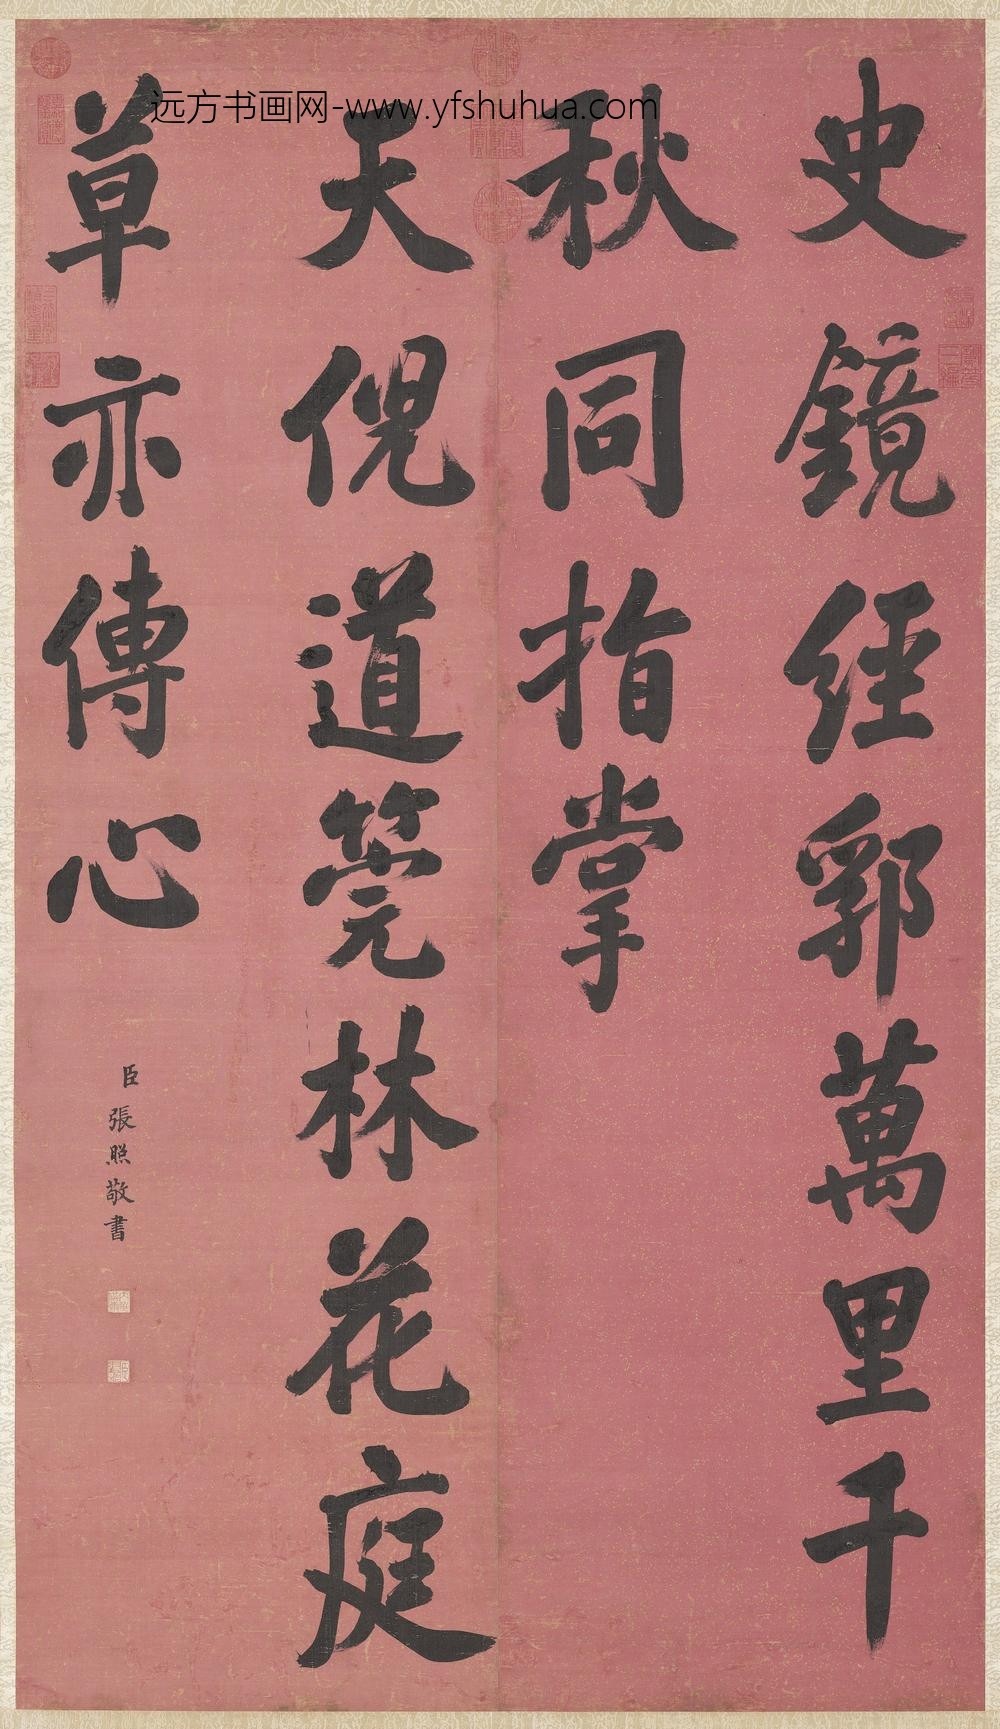 史鏡經郛萬里千
秋同指掌
天倪道筦林花庭
草亦傳心
臣張照敬書
远方书画网-www.yfshuhua.com